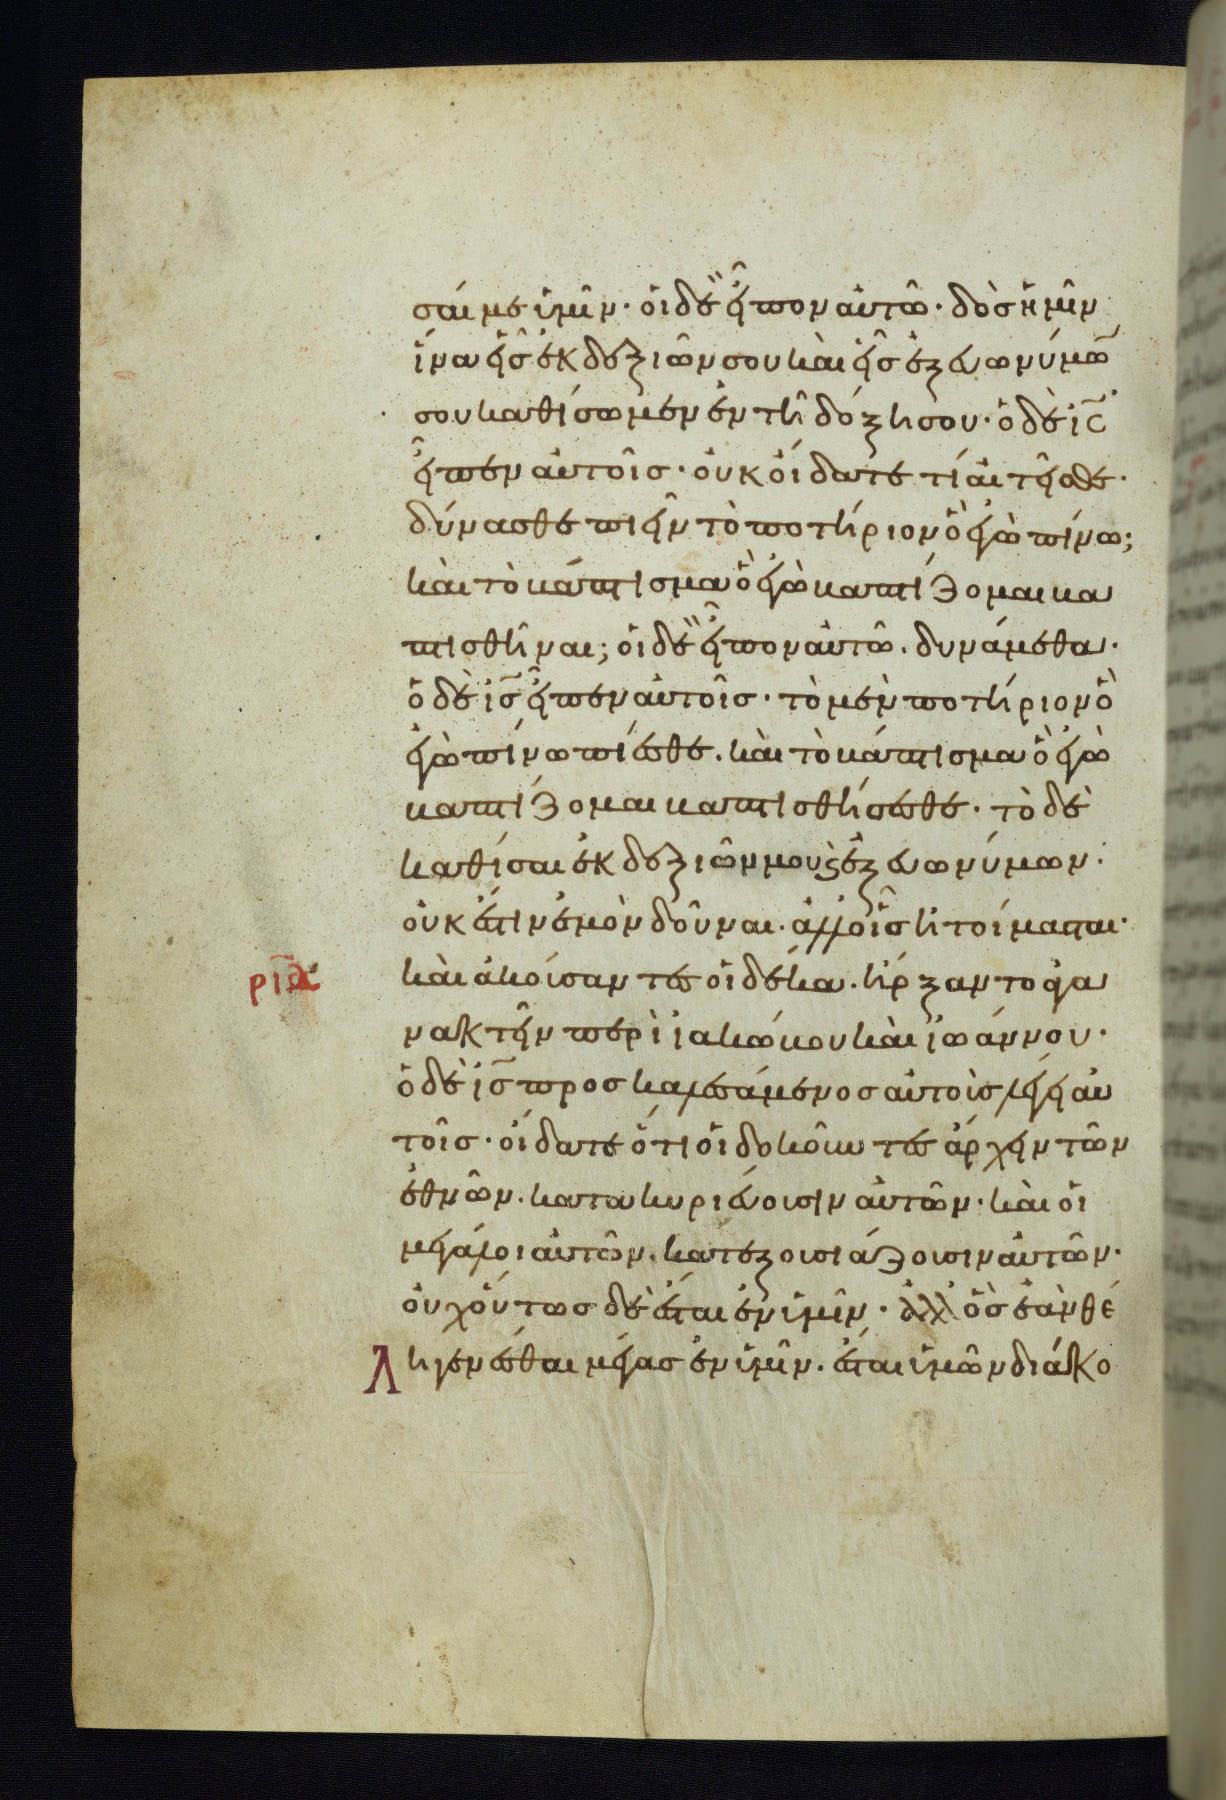 σαί με ὑμῖν· οἱ δὲ εἶπον αὐτῶ· δὸσ ἡμῖν
ἵνα εἷσ ἐκ δεξιῶν σου καὶ εἷσ ἐξ εὐωνύμω̅
σου καθίσωμεν ἐν τῆ δόξη σου· ὁ δὲ ι̅ς̅
εἶπεν αὐτοῖσ· οὐκ οἴδατε τί αἰτεῖσθε·
δύνασθε πιεῖν τὸ ποτήριον ὃ ἐγὼ πίνω;
καὶ τὸ βάπτισμα ὃ ἐγὼ βαπτίζομαι βα
πτισθῆναι; οἱ δὲ εἶπον αὐτῶ. δυνάμεθα.
ὁ δὲ ι̅σ̅ εἶπεν αὐτοῖσ· τὸ μὲν ποτήριον ὃ
ἐγὼ πίνω πίεσθε. καὶ τὸ βάπτισμα ὃ ἐγὼ
βαπτίζομαι βαπτισθήσεσθε· τὸ δὲ
καθίσαι ἐκ δεξιῶν μου ϗ ἐξ εὐωνύμων·
οὐκ ἔστιν ἐμὸν δοῦναι. ἀλλ οἷσ ἡτοίμασται·
ρι̅α̅ καὶ ἀκούσαντεσ οἱ δέκα. ἤρξαντο ἀγα
νακτεῖν περὶ ἰακώβου καὶ ἰωάννου·
ὁ δὲ ι̅σ̅ προσκαλεσάμενοσ αὐτοὺσ λέγει αὐ
τοῖσ· οἴδατε ὅτι οἱ δοκοῦντεσ ἄρχειν τῶν
ἐθνῶν. κατακυριεύουσιν αὐτῶν· καὶ οἱ
μεγάλοι αὐτῶν. κατεξουσιάζουσιν αὐτῶν·
οὐχ οὕτωσ δὲ ἔσται ἐν ὑμῖν· ἀλλ ὃσ ἐὰν θέ
λη γενέσθαι μέγασ ἐν ὑμῖν. ἔσται ὑμῶν διάκο